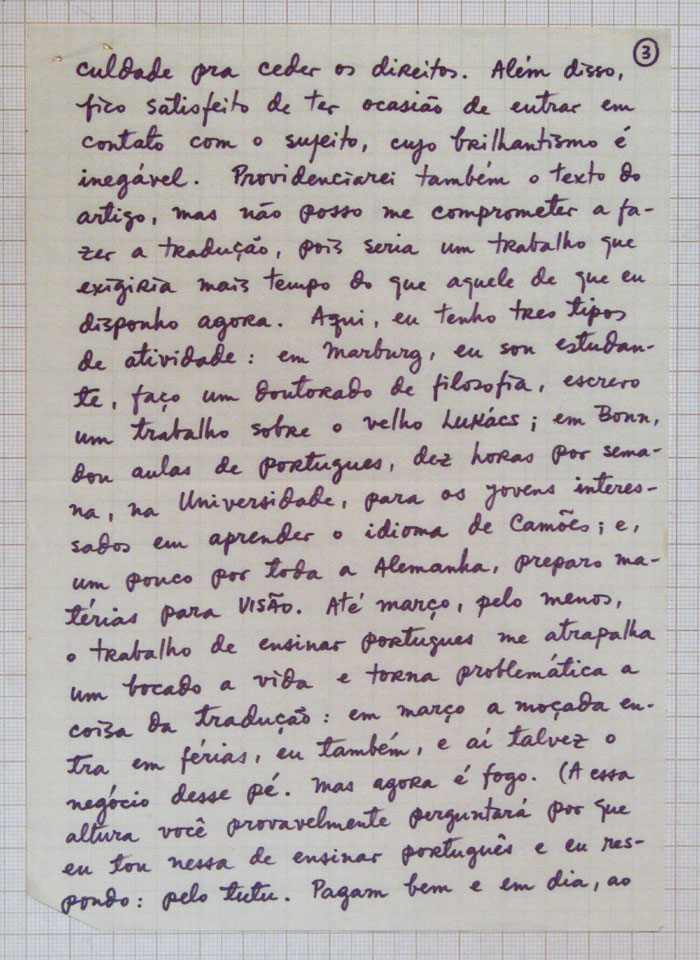 3
culdade pra ceder os direitos. Além disso,
fico satisfeito de ter ocasião de entrar em
contato com o sujeito, cujo brilhantismo é
inegável. Providenciarei também o texto do
artigo, mas não posso me comprometer a fa-
zer a tradução, pois seria um trabalho que
exigiria mais tempo do que aquele de que eu
disponho agora. Aqui, eu tenho tres tipos
de atividade: em Marburg, eu sou estudan-
te, faço um doutorado de filosofia, escrevo
um trabalho sobre o velho Lukács; em Bonn,
dou aulas de portugues, dez horas por sema-
na, na Universidade, para os jovens interes-
sados em aprender o idioma de Camões; e,
um pouco por toda a Alemanha, preparo ma-
térias para VISÃO. Até março, pelo menos,
o trabalho de ensinar portugues me atrapalha
um bocado a vida e torna problemática a
coisa da tradução: em março a moçada en-
tra em férias, eu também, e aí talvez o
negócio desse pé. Mas agora é fogo. (A essa
altura você provavelmente perguntará por que
eu tou nessa de ensinar português e eu res-
pondo: pelo tutu. Pagam bem e em dia, ao